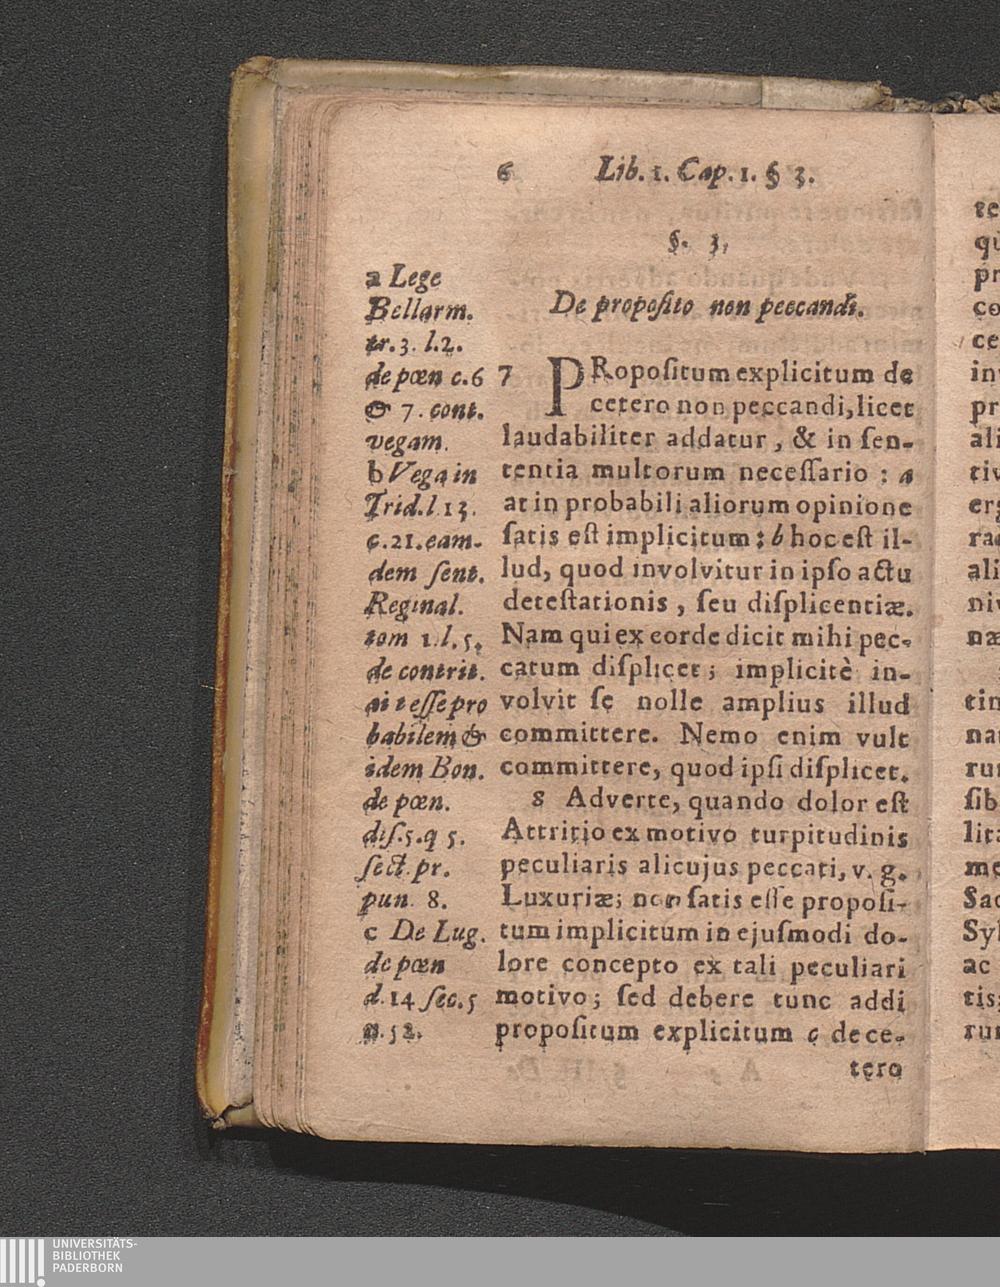 6 Lib. 1. Cap. 1. § 3.
§. 3,
De proposito non peccandi.
a Lege
Bellarm.
tr. 3. l. 2.
de pœn c. 6
& 7. cont.
vegam.
b Vega in
Trid. l 13.
c. 21. eam-
dem ſent.
Reginal.
tom 1. l. 5.
de contrit.
ait eſſe pro
babilem &
idem Bon.
de pœn.
diſ. 5. q 5.
ſect. pr.
pun 8.
c De Lug.
de pœn
d. 14 ſec. 5
n. 52.
7 PRopoſitum explicitum de
cetero non peccandi, licet
laudabiliter addatur, & in ſen-
tentia multorum neceſſario : a
at in probabili aliorum opinione
ſatis eſt implicitum : b hoc eſt il-
lud, quod involvitur in ipſo actu
deteſtationis, ſeu diſplicentiæ.
Nam qui ex corde dicit mihi pec-
catum diſplicet; implicitè in-
volvit ſe nolle amplius illud
committere. Nemo enim vult
committere, quod ipſi diſplicet.
8 Adverte, quando dolor eſt
Attritio ex motivo turpitudinis
peculiaris alicujus peccati, v. g.
Luxuriæ; non ſatis eſſe propoſi-
tum implicitum in ejuſmodi do-
lore concepto ex tali peculiari
motivo; ſed debere tunc addi
propoſitum explicitum c de ce-
tero
te
qu
pr
co
ce
in
pr
ali
tiv
erg
rac
ali
niv
næ
tin
nat
rur
ſib
lita
me
Sac
Syl
ac
tis;
rur
UNIVERSITÄTS-
BIBLIOTHEK
PADERBORN